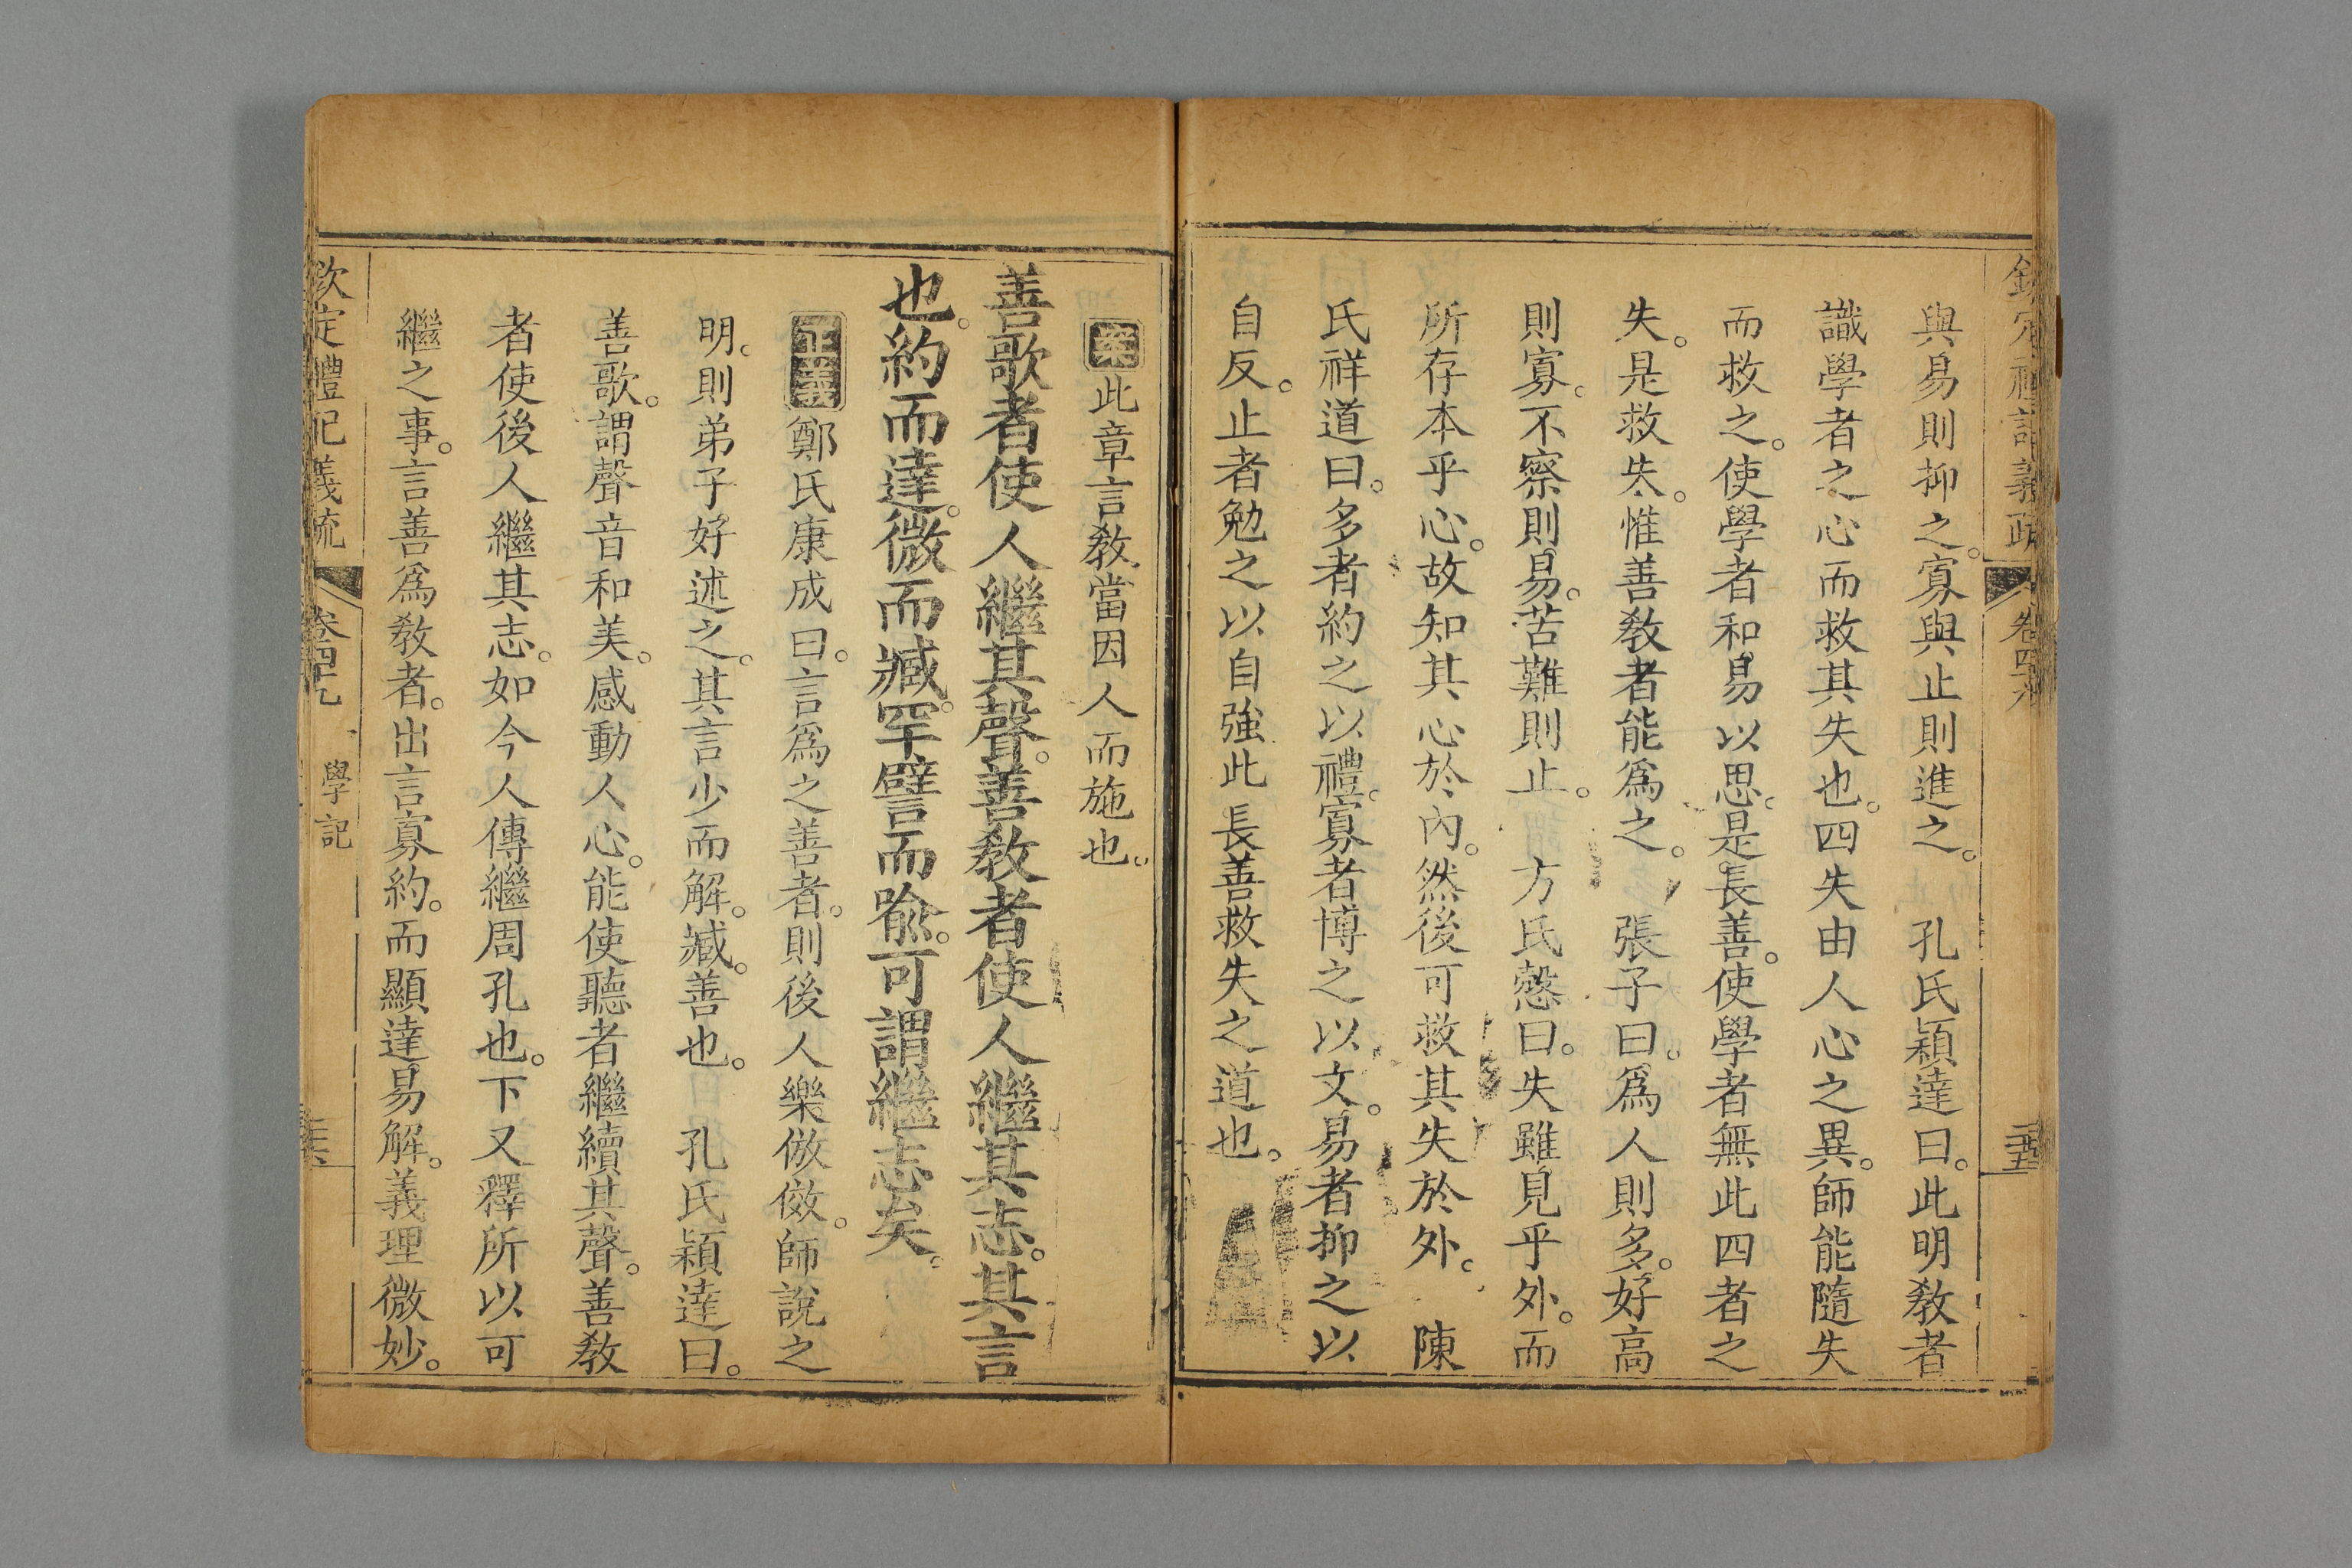 欽定禮記義疏 卷四十九 三五
與易則抑之。寡與止則進之。 孔氏穎達曰。此明教者
識學者之心而救其失也。四失由人心之異。師能隨失
而救之。使學者和易以思。是長善。使學者無此四者之
失。是救失。惟善教者能爲之。 張子曰。爲人則多。好高
則寡。不察則易。苦難則止。 方氏慤曰。失雖見乎外。而
所存本乎心。故知其心於內。然後可救其失於外。 陳
氏祥道曰。多者約之以禮。寡者博之以文。易者抑之以
自反。止者勉之以自強此長善救失之道也。
案此章言教當因人而施也。
善歌者使人繼其聲。善教者使人繼其志。其言
也。約而達。微而臧。罕譬而喩。可謂繼志矣。
正義鄭氏康成曰。言爲之善者。則後人樂倣傚。師說之
明。則弟子好述之。其言少而解。臧。善也。 孔氏穎達曰。
善歌。謂聲音和美。感動人心。能使聽者繼續其聲。善教
者使後人繼其志。如今人傳繼周孔也。下又釋所以可
繼之事。言善爲教者。出言寡約。而顯達易解。義理微妙。
欽定禮記義疏 卷四十九 學記 三六